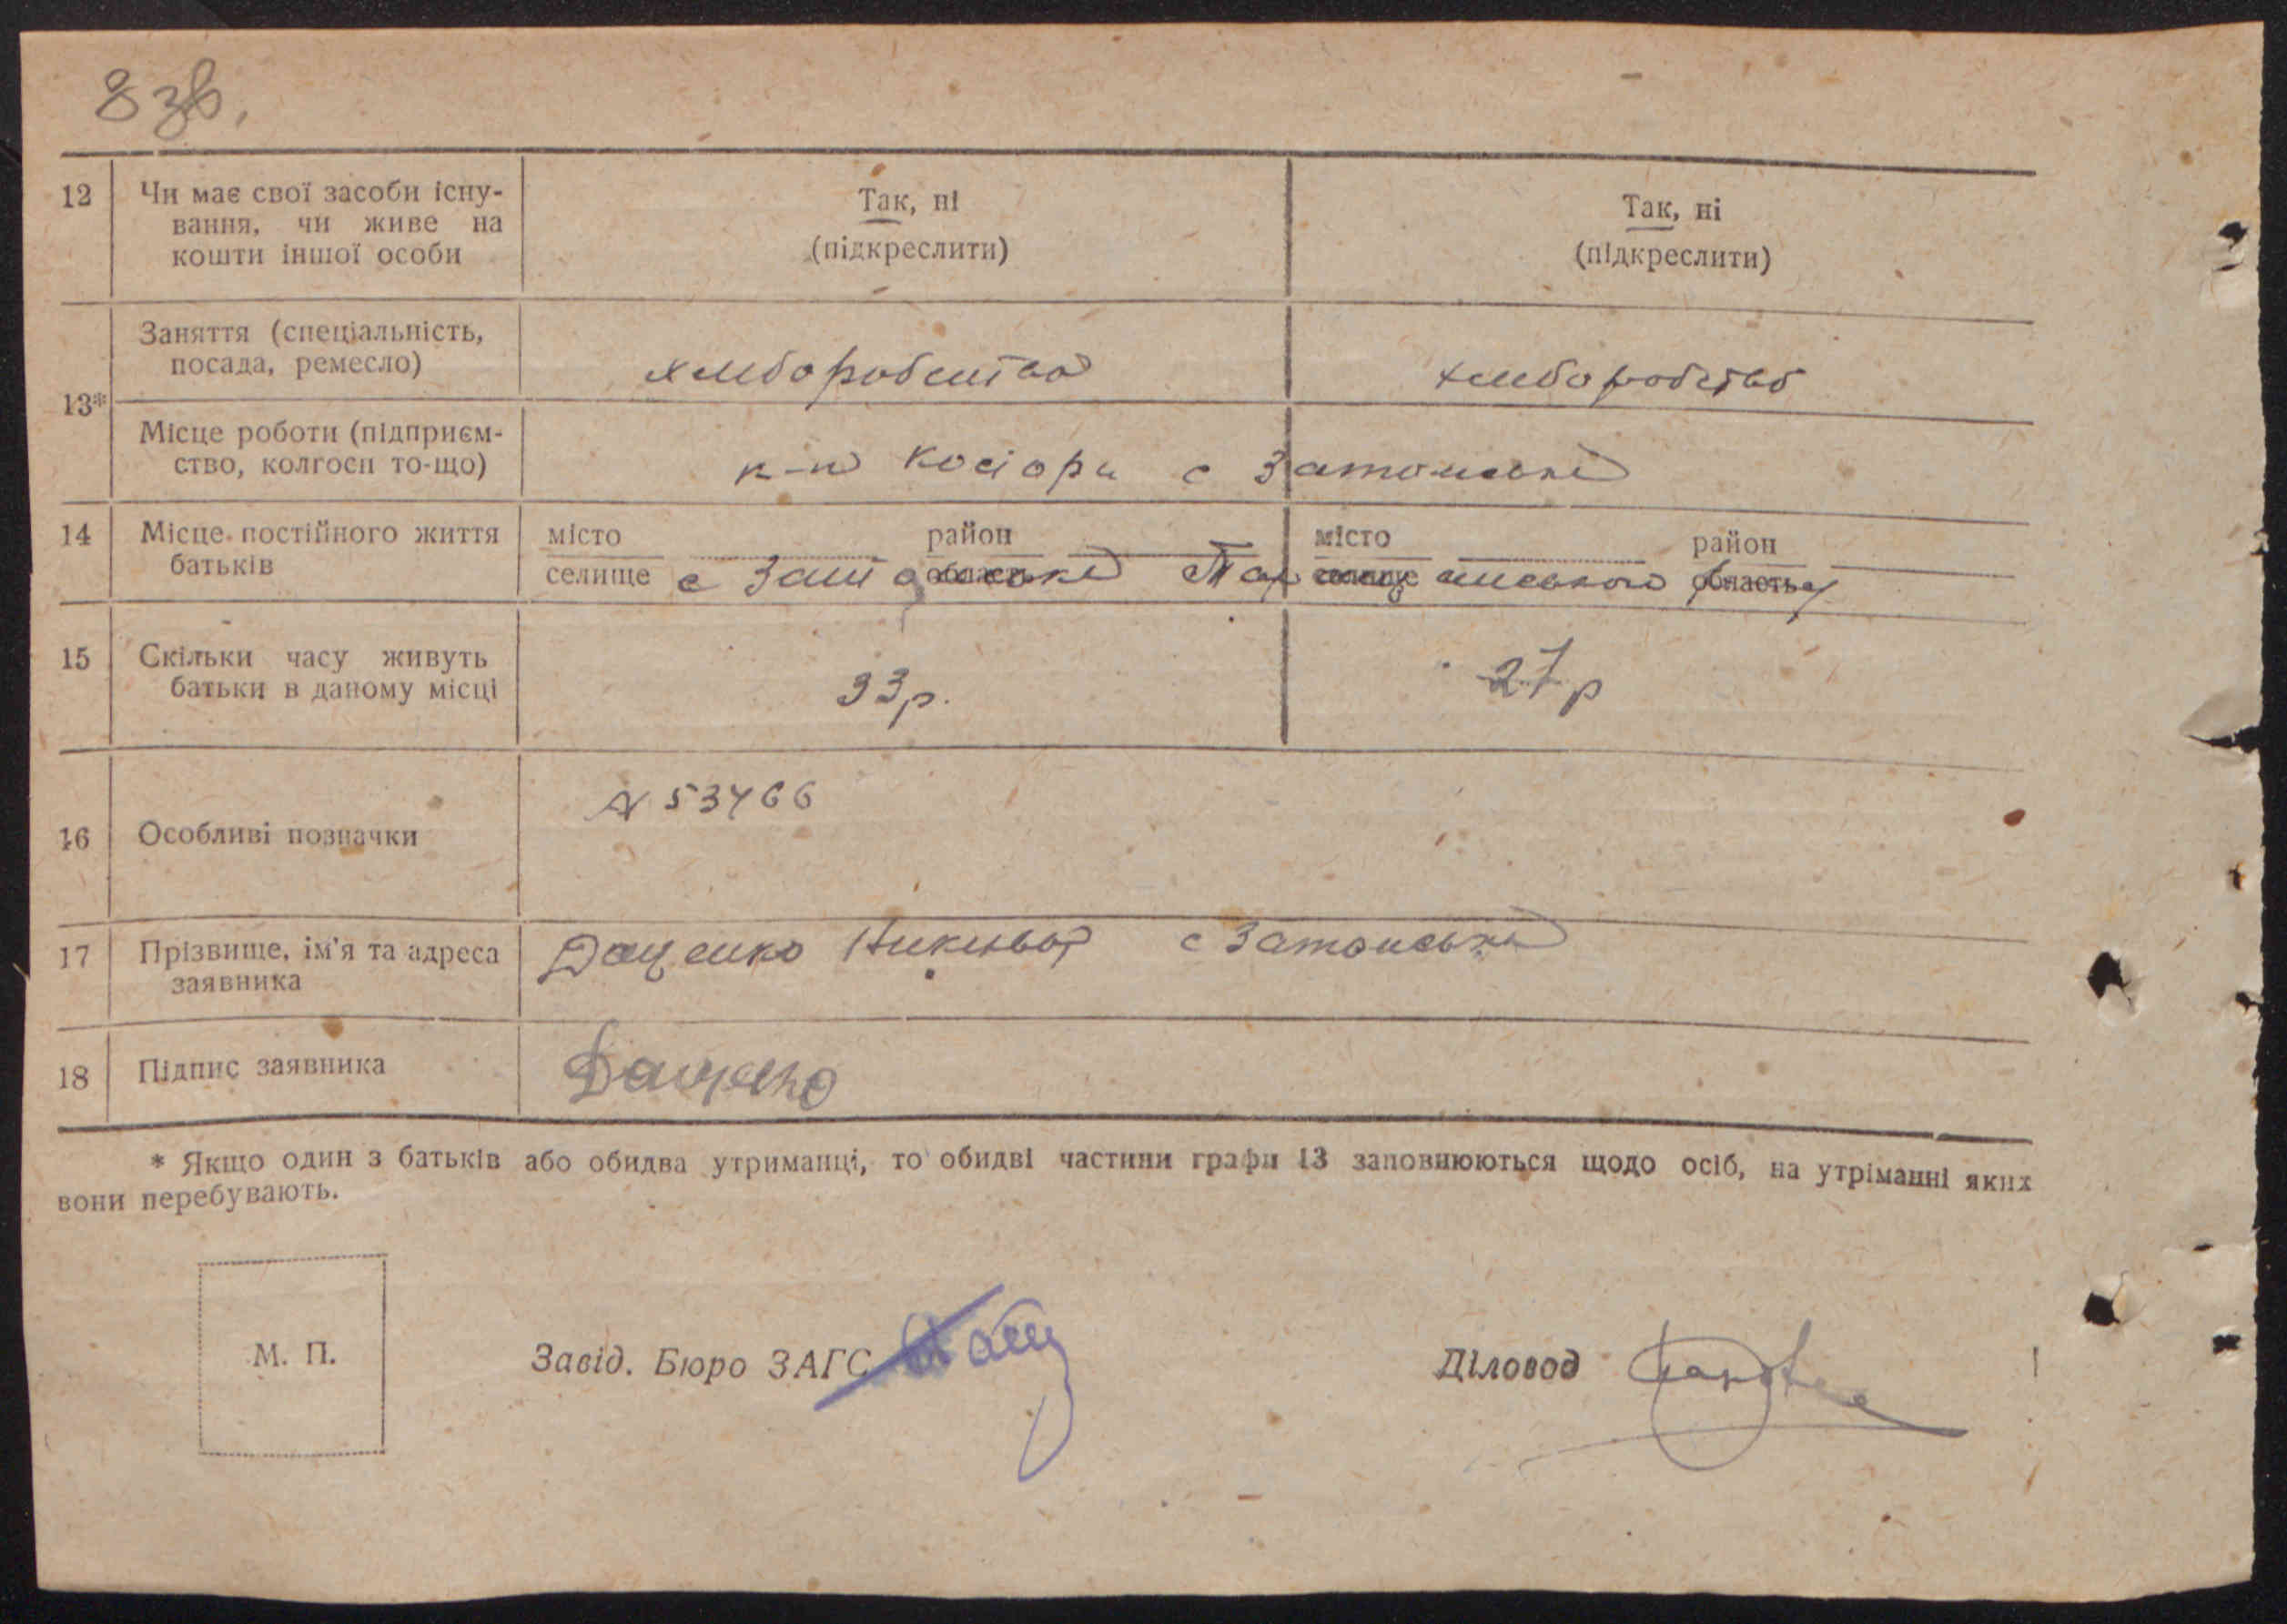 8 зв.
12 Чи має свої засоби існу-
вання, чи живе на
кошти іншої особи
Так, ні
(підкреслити)
Так, ні
(підкреслити)
13*
Заняття (спеціальність,
посада, ремесло)
хлібор
хлібор
Місце роботи (підприєм-
ство, колгосп то-що)
к-п Косіора с Затонське
14 Місце постійного життя
батьків
місто район місто район
селище с Затонське область селище область
15 Скільки часу живуть
батьки в даному місці
33 р.
27 р
16 Особливі позначки
N 53466
17 Прізвище, ім'я та адреса
заявника
Даценко с Затонське
18 Підпис заявника
Даценко
* Якщо один з батьків або обидва утриманці, то обидві частини графи 13 заповнюються щодо осіб, на утріманні яких
вони перебувають.
М. П.
Завід. Бюро ЗАГС
Діловод